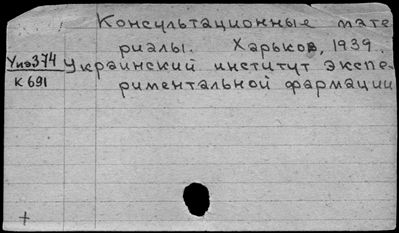 Консультационные мате
риалы. Харьков, 1939.
Украинский институт экспе-
риментальной фармации
374
К 691
+